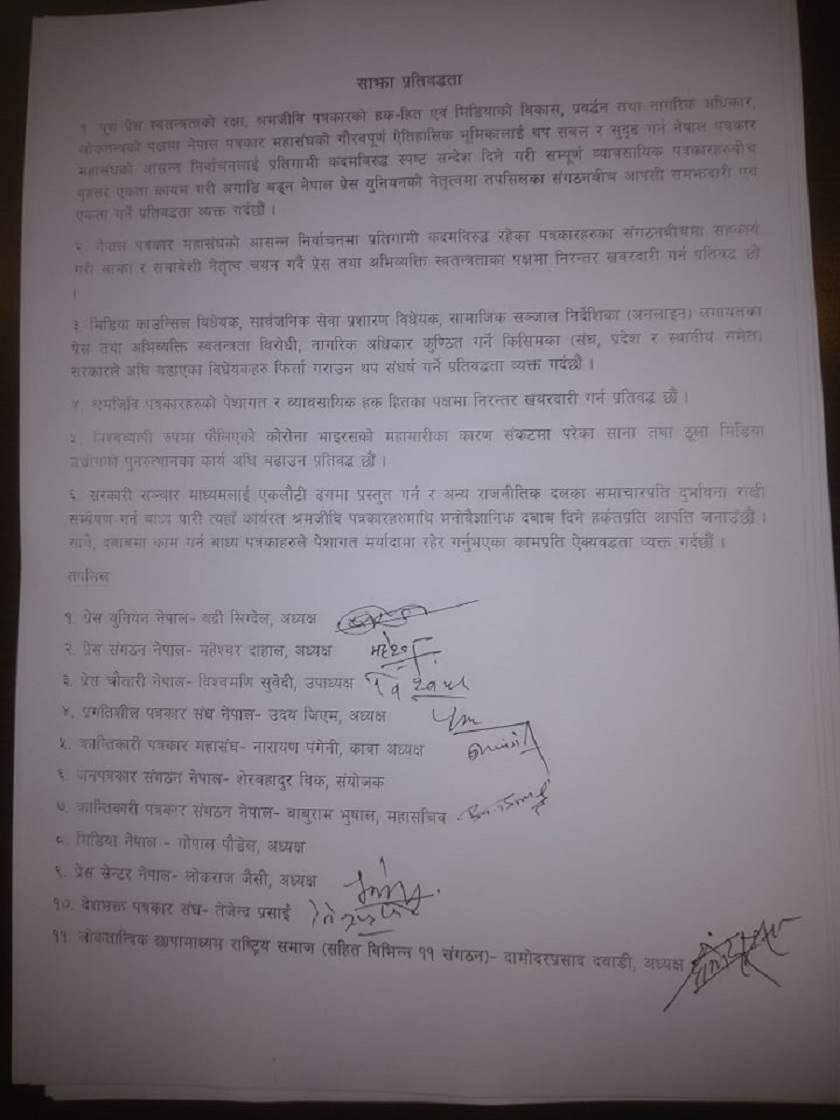 साझा प्रतिवद्धता
१. पूर्ण प्रेस स्वतन्त्रताको रक्षा, श्रमजीवि पत्रकारको हक-हित एवं मिडियाको विकास, प्रवर्द्धन तथा नागरिक अधिकार,
लोकतन्त्रको पक्षमा नेपाल पत्रकार महासंघको गौरवपूर्ण ऐतिहासिक भूमिकालाई थप सबल र सुदृढ गर्न नेपाल पत्रकार
महासंघको आसन्न निर्वाचनलाई प्रतिगामी कदमविरुद्ध स्पष्ट सन्देश दिने गरी सम्पूर्ण व्यावसायिक पत्रकारहरुबीच
बृहत्तर एकता कायम गरी अगाडि बढ्न नेपाल प्रेस युनियनको नेतृत्वमा तपसिलका संगठनबीच आपसी समझदारी एवं
एकता गर्ने प्रतिवद्धता व्यक्त गर्दछौं ।
२. नेपाल पत्रकार महासंघको आसन्न निर्वाचनमा प्रतिगामी कदमविरुद्ध रहेका पत्रकारहरुका संगठनबीचमा सहकार्य
गरी साझा र समावेशी नेतृत्व चयन गर्दै प्रेस तथा अभिव्यक्ति स्वतन्त्रताका पक्षमा निरन्तर खबरदारी गर्न प्रतिवद्ध छौं
।
३. मिडिया काउन्सिल विधेयक, सार्वजनिक सेवा प्रशारण विधेयक, सामाजिक सञ्जाल निर्देशिका (अनलाइन) लगायतका
प्रेस तथा अभिव्यक्ति स्वतन्त्रता विरोधी, नागरिक अधिकार कुण्ठित गर्ने किसिमका (संघ, प्रदेश र स्थानीय समेत)
सरकारले अघि बढाएका विधेयकहरु फिर्ता गराउन थप संघर्ष गर्ने प्रतिवद्धता व्यक्त गर्दछौं ।
४. श्रमजिवि पत्रकारहरुको पेशागत र व्यावसायिक हक हितका पक्षमा निरन्तर खबरदारी गर्न प्रतिवद्ध छौं ।
५. विश्वव्यापी रुपमा फैलिएको कोरोना भाइरसको महामारीका कारण संकटमा परेका साना तथा ठूला मिडिया
उद्योगको पुनरुत्थानका कार्य अघि बढाउन प्रतिवद्ध छौं ।
६. सरकारी सञ्चार माध्यमलाई एकलौटी ढंगमा प्रस्तुत गर्न र अन्य राजनीतिक दलका समाचारप्रति दुर्भावना राखी
सम्प्रेषण गर्न बाध्य पारी त्यहाँ कार्यरत श्रमजीवि पत्रकारहरुमाथि मनोवैज्ञानिक दबाब दिने हर्कतप्रति आपत्ति जनाउँछौं ।
साथै, दबाबमा काम गर्न बाध्य पत्रकाहरुले पेशागत मर्यादामा रहेर गर्नुभएका कामप्रति ऐक्यवद्धता व्यक्त गर्दछौं ।
तपसिल
१. प्रेस युनियन नेपाल- बद्री सिग्देल, अध्यक्ष
२. प्रेस संगठन नेपाल- महेश्वर दाहाल, अध्यक्ष
३. प्रेस चौतारी नेपाल- विश्वमणि सुवेदी, उपाध्यक्ष
४. प्रगतिशील पत्रकार संघ नेपाल- उदय जिएम, अध्यक्ष
५. क्रान्तिकारी पत्रकार महासंघ- नारायण पंगेनी, कावा अध्यक्ष
६. जनपत्रकार संगठन नेपाल- शेरबहादुर विक, संयोजक
७. क्रान्तिकारी पत्रकार संगठन नेपाल- बाबुराम भुषाल, महासचिव
८. मिडिया नेपाल - गोपाल पौडेल, अध्यक्ष
९. प्रेस सेन्टर नेपाल- लोकराज जैसी, अध्यक्ष
१०. देशभक्त पत्रकार संघ- तेजेन्द्र प्रसाई
११. लोकतान्त्रिक छापामाध्यम राष्ट्रिय समाज (सहित विभिन्न ११ संगठन)- दामोदरप्रसाद दवाडी, अध्यक्ष